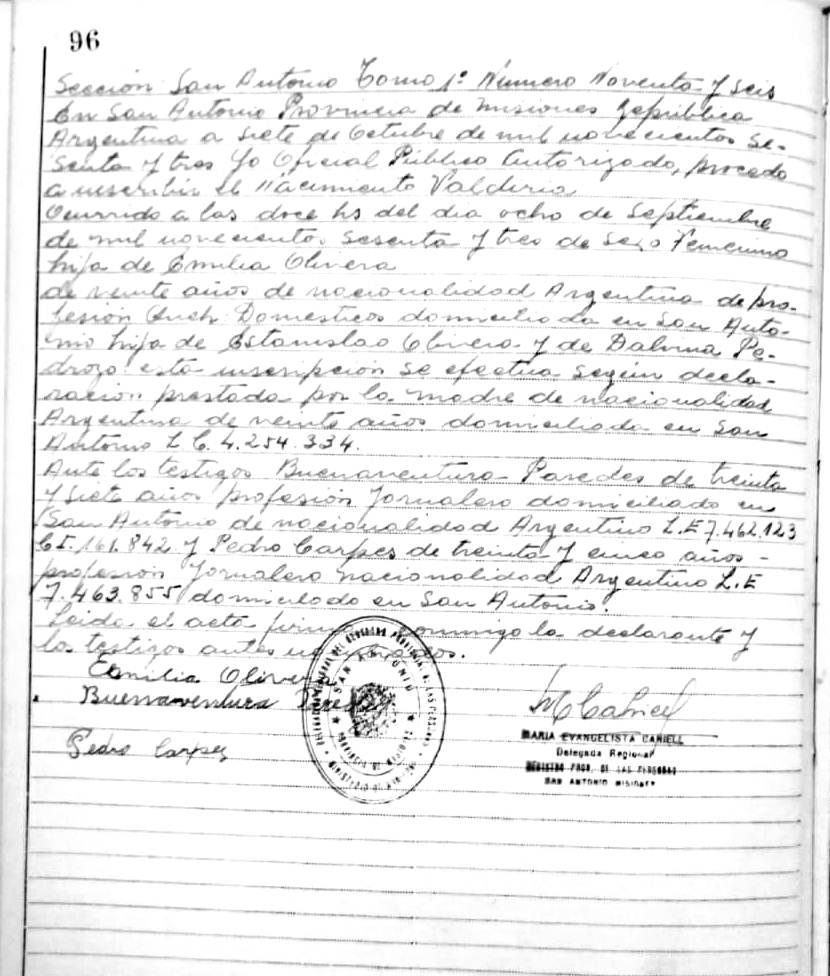 96
Sección San Antonio Tomo 1º Número Noventa y seis
En San Antonio Provincia de Misiones República
Argentina a siete de Octubre de mil novecientos se-
senta y tres Yo Oficial Público Autorizado, procedo
a inscribir el Nacimiento Valderia
Ocurrido a las doce hs del dia ocho de Septiembre
de mil novecientos sesenta y tres de sexo Femenino
hija de Emilia Olivera
de veinte años de nacionalidad Argentina de pro-
fesión Domesticos domiciliada en San Anto-
nio hija de Estanislao Olivera y de Dalma Pe-
drozo esta inscripción se efectua según decla-
ración prestada por la madre de nacionalidad
Argentina de veinte años domiciliada en San
Antonio L C. 4.254.334.
Ante los testigos Buenaventura Paredes de treinta
y siete años profesión Jornalero domiciliado en
San Antonio de nacionalidad Argentino L.E 7.462.123
C.I. 161.842 y Pedro Carpes de treinta y cinco años -
profesión Jornalero nacionalidad Argentino L.E
7.463.855 domiciliado en San Antonio.
Leida el acta conmigo la declarante y
los testigos antes
Emilia Olivera
Buenaventura Paredes
Pedro Carpes
SAN ANTONIO
MARIA EVANGELISTA CARIELL
Delegada Regional
REGISTRO PROV. DE LAS PERSONAS
SAN ANTONIO MISIONES